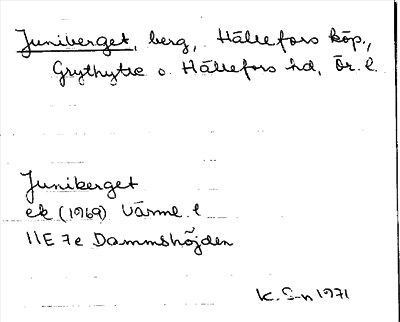 Juniberget, berg, Hällefors köp.,
Grythytte o. Hällefors hd, Ör. l.
Juniberget
ek (1969) Värml. l
11E 7e Dammshöjden
K. S-n 1971